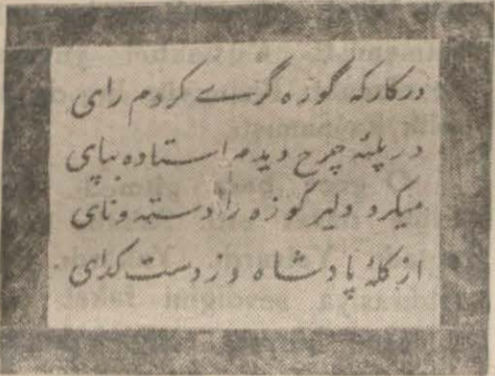 درکارگه کوزه گرے کردم رای
در پلئه چرخ دیدم استاده بپای
میکرد دلیر کوزه را دسته و نای
از کلهٔ پادشاه و ز دست گدای